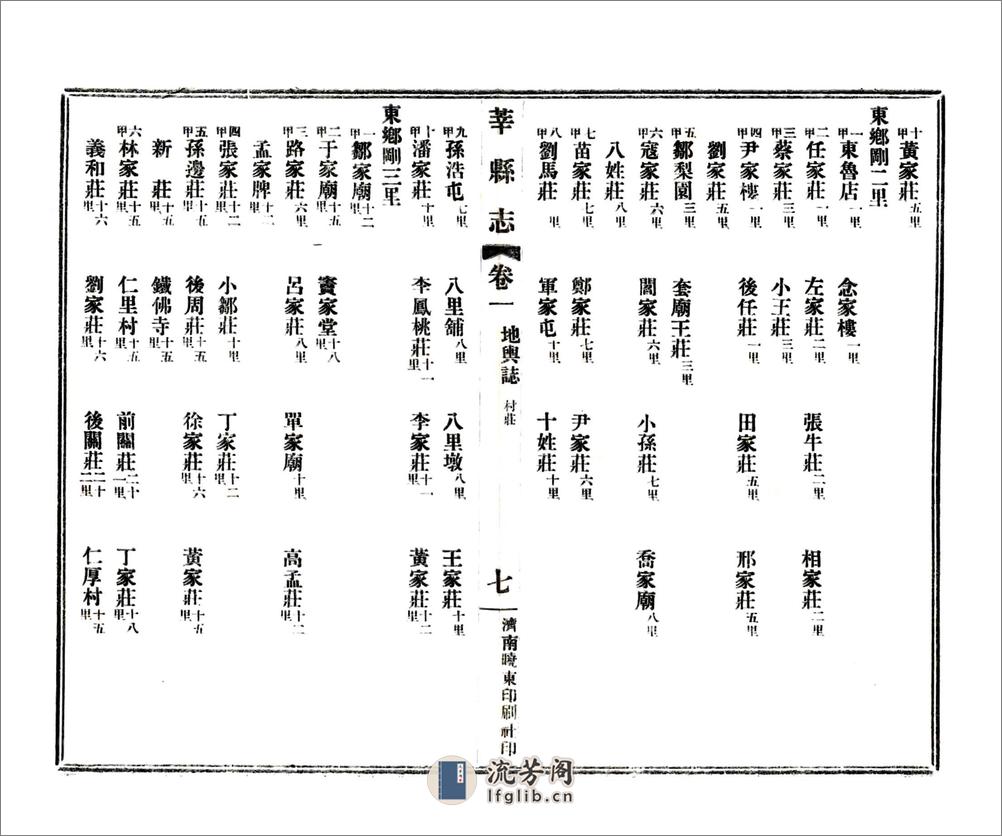 十甲黃家莊十五里
東鄉剛二里
一甲東魯店一里　念家樓一里
二甲任家莊一里　左家莊二里　張牛莊二里　相家莊二里
三甲蔡家莊三里　小王莊三里
四甲尹家樓一里　後任莊一里　田家莊五里　邢家莊五里
劉家莊五里
五甲鄒梨園三里　套廟王莊三里
六甲寇家莊六里　閻家莊六里　小孫莊七里　喬家廟八里
八姓莊八里
七甲苗家莊七里　鄭家莊七里　尹家莊六里
八甲劉馬莊里　軍家屯十里　十姓莊十里
莘縣志　卷一　地輿誌　村莊　七　濟南曉東印刷社印
九甲孫浩屯七里　八里舖八里　八里墩八里　王家莊十里
十甲潘家莊十里　李鳳桃莊十一里　李家莊十一里　黃家莊十二里
東鄉剛三里
一甲鄒家廟十二里
二甲于家廟十五里　竇家堂十八里
三甲路家莊六里　呂家莊八里　單家廟十里　高孟莊十二里
孟家牌十二里
四甲張家莊十二里　小鄒莊十里　丁家莊十二里
五甲孫邊莊十五里　後周莊十五里　徐家莊十六里　黃家莊十五里
新莊十五里　鐵佛寺十五里
六甲林家莊十五里　仁里村十五里　前關莊二十一里　丁家莊十八里
義和莊十六里　劉家莊十六里　後關莊二十二里　仁厚村十五里
流芳阁
lfglib.cn